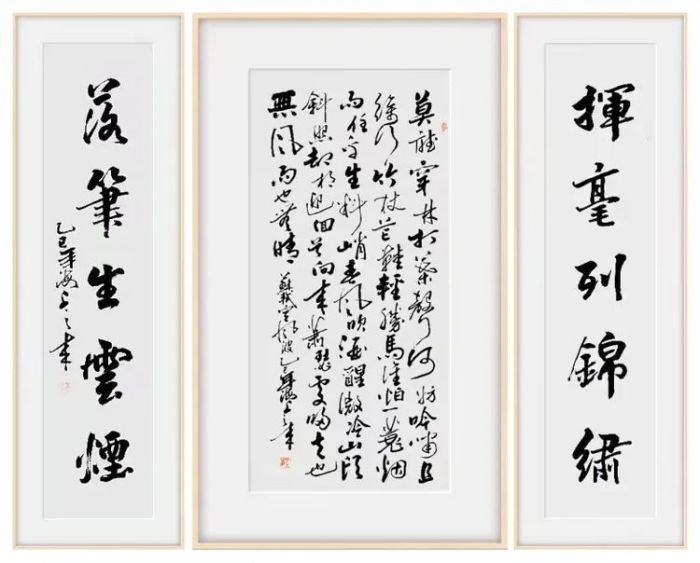 揮毫列錦繡
莫聽穿林打葉聲何妨吟嘯且
徐行竹杖芒鞋輕勝馬誰怕一蓑烟
雨任平生料峭春風吹酒醒微冷山頭
斜照却相迎回首向来蕭瑟處歸去也
無風雨也無晴 蘇軾定風波乙巳年
落筆生雲煙
乙巳年